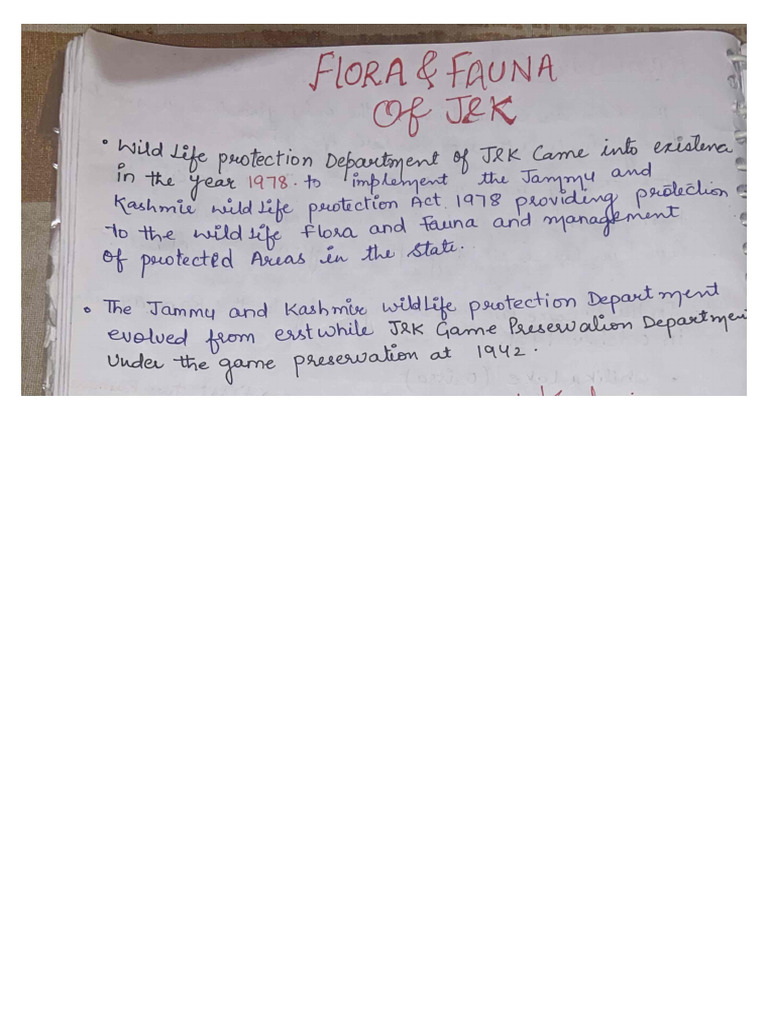 FLORA & FAUNA
Of J&K
• Wild Life protection Department of J&K Came into existena
in the year 1978. to implement the Jammu and
Kashmie wild Life protection Act. 1978 providing protection
to the wild life flora and fauna and management
of protected Areas in the state.
• The Jammu and Kashmir wildLife protection Department
evolved from erstwhile J&K Game Preservation Departmen
Under the game preservation at 1942.